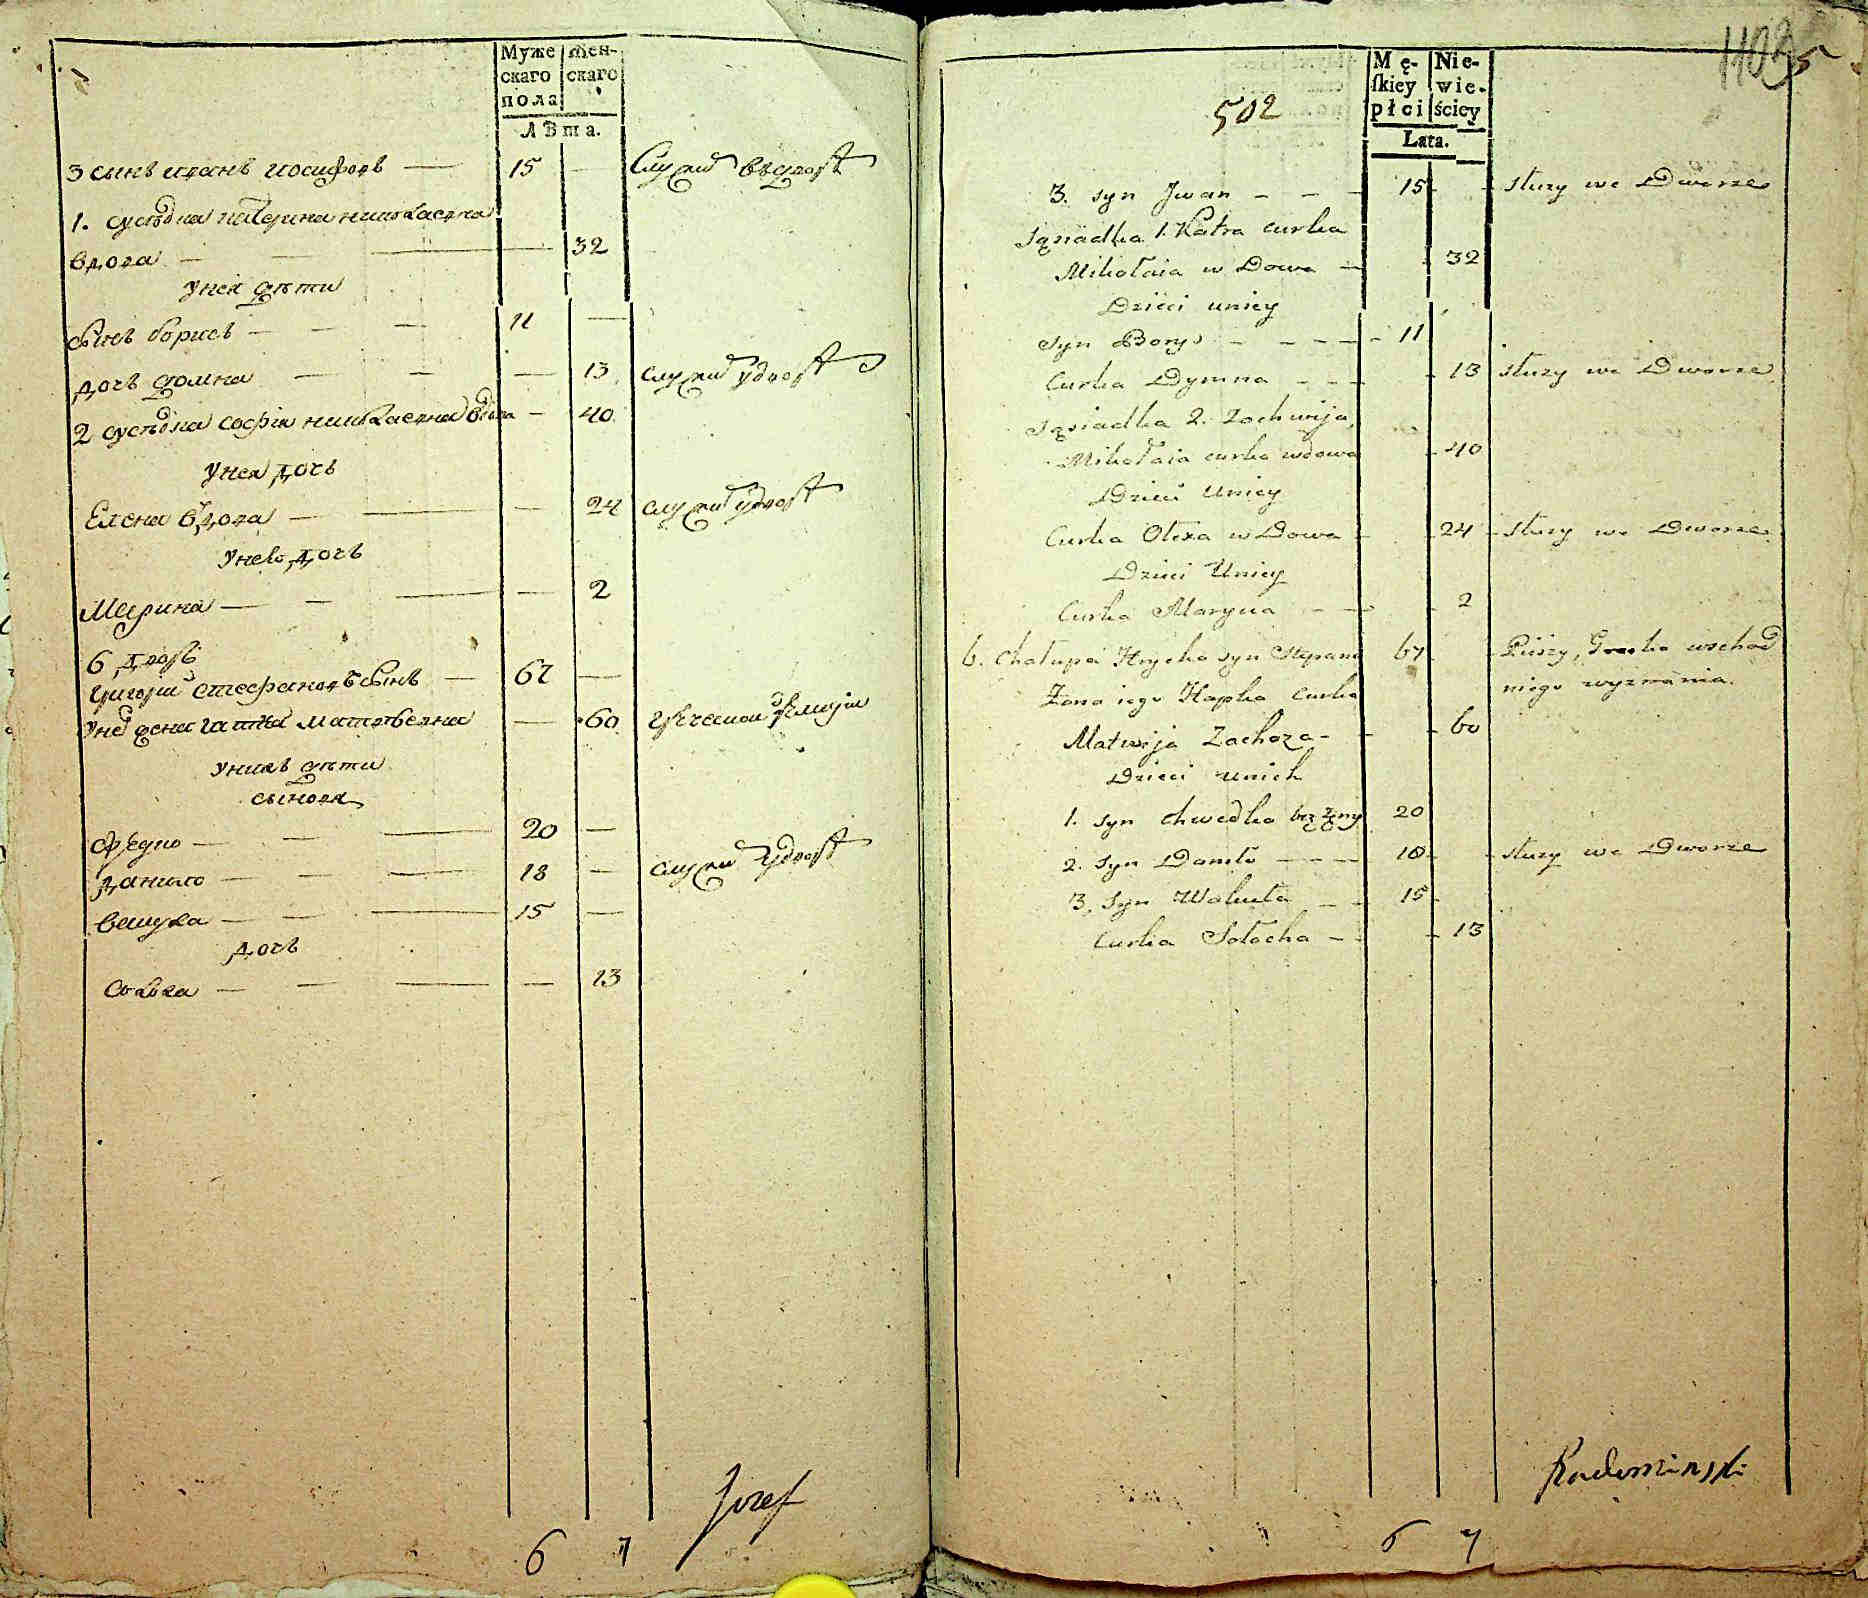 Муже
скаго
пола
Жен-
скаго
Лѣта.
3 сынъ иванъ иосифовъ — 15 — Служит
1. сусѣдка катерина николаевна
вдова — 32
унея дѣти
сынъ борисъ — 11 —
дочь домна — 13 служит
2 сусѣдка софия николаевна вдова — 40
унея дочь
Елена вдова — 24 служит
унее дочь
Марина — 2
6 двор
григорий стефановъ сынъ — 67 —
жена гапка матвѣевна — 60
унихъ дѣти
сыновя
федко — 20 —
данило — 18 — служит
вакула — 15 —
дочь
солоха — 13
Jozef
6 7
1103 5
502
Mę-
ſkiey
płci
Nie-
wie-
ściey
Lata.
3. syn Jwan - - - 15 - służy we Dworze
Sąsiadka 1. Katra curka
Mikołaia wDowa - 32
Dzieci unicy
syn Borys - - - - 11
Curka Dymna - - - 13 służy we Dworze
Sąsiadka 2. Zochwija,
Mikołaia curka wdowa - 40
Dzieci Unicy
Curka Olexa wDowa - 24 - służy we Dworze
Dzieci Unicy
Curka Maryna - - - 2
6. Chałupa Hrycko syn Stepana 67 wschod
Żona iego Hapka Curka niego wyznania.
Matwija Zachoza - - 60
Dzieci unich
1. syn chwedko bez żony 20
2. syn Daniło - - - 18 - służy we Dworze
3. syn Wakuła - - 15 -
Curka Sołocha - - 13
Radominski
6 7